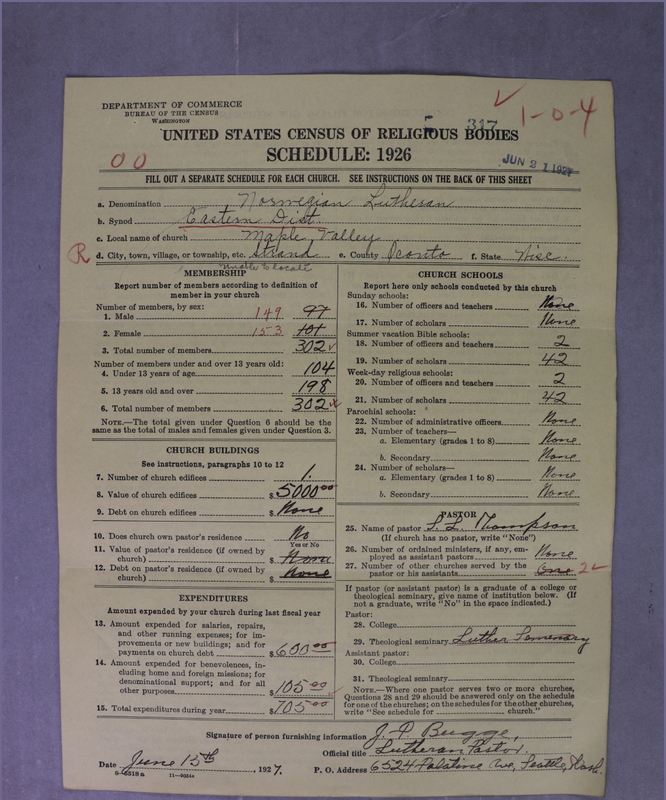 DEPARTMENT OF COMMERCE
BUREAU OF THE CENSUS
WASHINGTON
1-0-4
317
UNITED STATES CENSUS OF RELIGIOUS BODIES
SCHEDULE: 1926
00
JUN 21 1927
FILL OUT A SEPARATE SCHEDULE FOR EACH CHURCH. SEE INSTRUCTIONS ON THE BACK OF THIS SHEET
a. Denomination Norwegian Lutheran
b. Synod Eastern Dist.
c. Local name of church Maple Valley
R d. City, town, village, or township, etc. Strand e. County Oconto f. State Wisc.
Unable to locate
MEMBERSHIP
Report number of members according to definition of
member in your church
Number of members, by sex:
1. Male 149 97
2. Female 153 101
3. Total number of members 302
Number of members under and over 13 years old:
4. Under 13 years of age 104
5. 13 years old and over 198
6. Total number of members 302
NOTE.—The total given under Question 6 should be
same as the total of males and females given under Question 3.
CHURCH BUILDINGS
See instructions, paragraphs 10 to 12
7. Number of church edifices 1.
8. Value of church edifices $5000.00
9. Debt on church edifices $None
10. Does church own pastor's residence No
Yes or No
11. Value of pastor's residence (if owned by
church) $None
12. Debt on pastor's residence (if owned by
church) $None
EXPENDITURES
Amount expended by your church during last fiscal year
13. Amount expended for salaries, repairs,
and other running expenses; for im-
provements or new buildings; and for
payments on church debt $600.00
14. Amount expended for benevolences, in-
cluding home and foreign missions; for
denominational support; and for all
other purposes $105.00
15. Total expenditures during year $705.00
CHURCH SCHOOLS
Report here only schools conducted by this church
Sunday schools:
16. Number of officers and teachers None
17. Number of scholars None
Summer vacation Bible schools:
18. Number of officers and teachers 2
19. Number of scholars 42
Week-day religious schools:
20. Number of officers and teachers 2
21. Number of scholars 42
Parochial schools:
22. Number of administrative officers None
23. Number of teachers—
a. Elementary (grades 1 to 8) None
b. Secondary None
24. Number of scholars—
a. Elementary (grades 1 to 8) None
b. Secondary None
PASTOR
25. Name of pastor Thompson
(If church has no pastor, write "None")
26. Number of ordained ministers, if any, em-
ployed as assistant pastors None
27. Number of other churches served by the
pastor or his assistants One 2
If pastor (or assistant pastor) is a graduate of a college or
theological seminary, give name of institution below. (If
not a graduate, write "No" in the space indicated.)
Pastor:
28. College
29. Theological seminary Luther Semenary
Assistant pastor:
30. College
31. Theological seminary
NOTE.—Where one pastor serves two or more churches,
Questions 28 and 29 should be answered only on the schedule
for one of the churches; on the schedules for the other churches,
write "See schedule for church."
Signature of person furnishing information J. P. Bugge,
Official title Lutheran Pastor.
Date June 15th, 1927. P. O. Address 6524 Palatine Ave, Seattle, Wash.